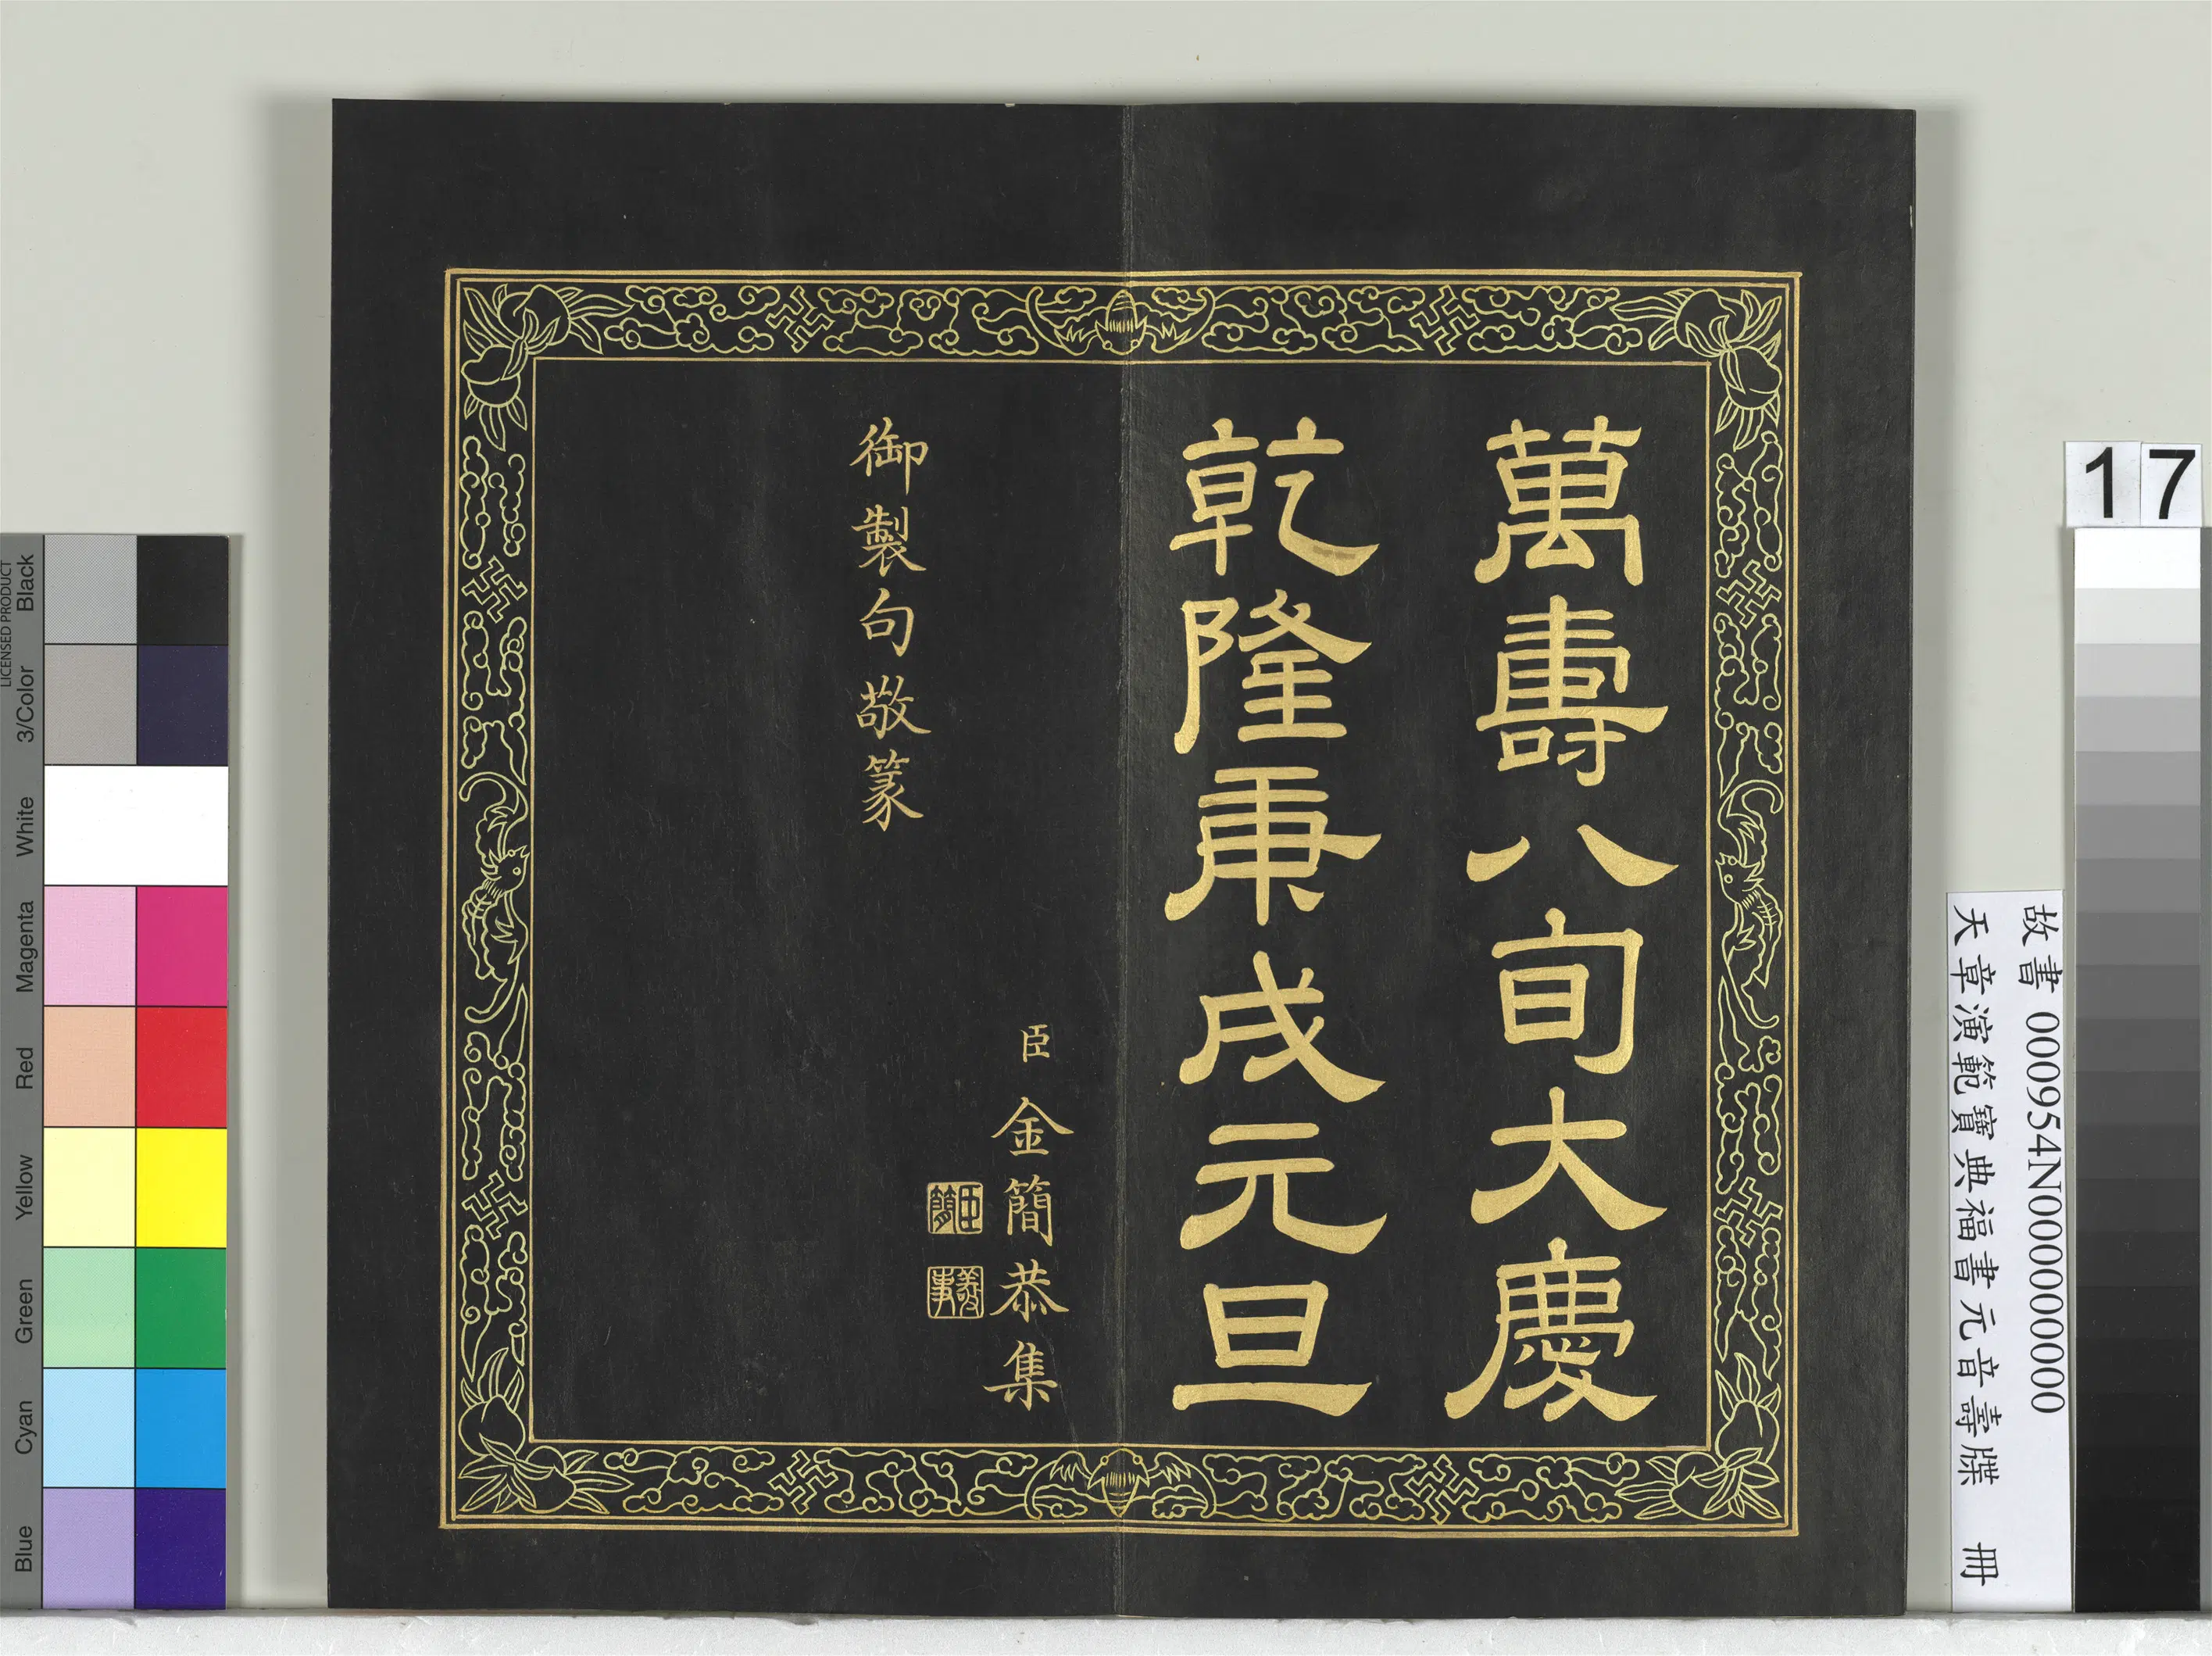 萬壽八旬大慶
乾隆庚戌元旦
臣金簡恭集
御製句敬篆
臣簡
義事
17
故書 000954N000000000
天章演範寶典福書元音壽牒 冊
LICENSED PRODUCT
Black
3/Color
White
Magenta
Red
Yellow
Green
Cyan
Blue